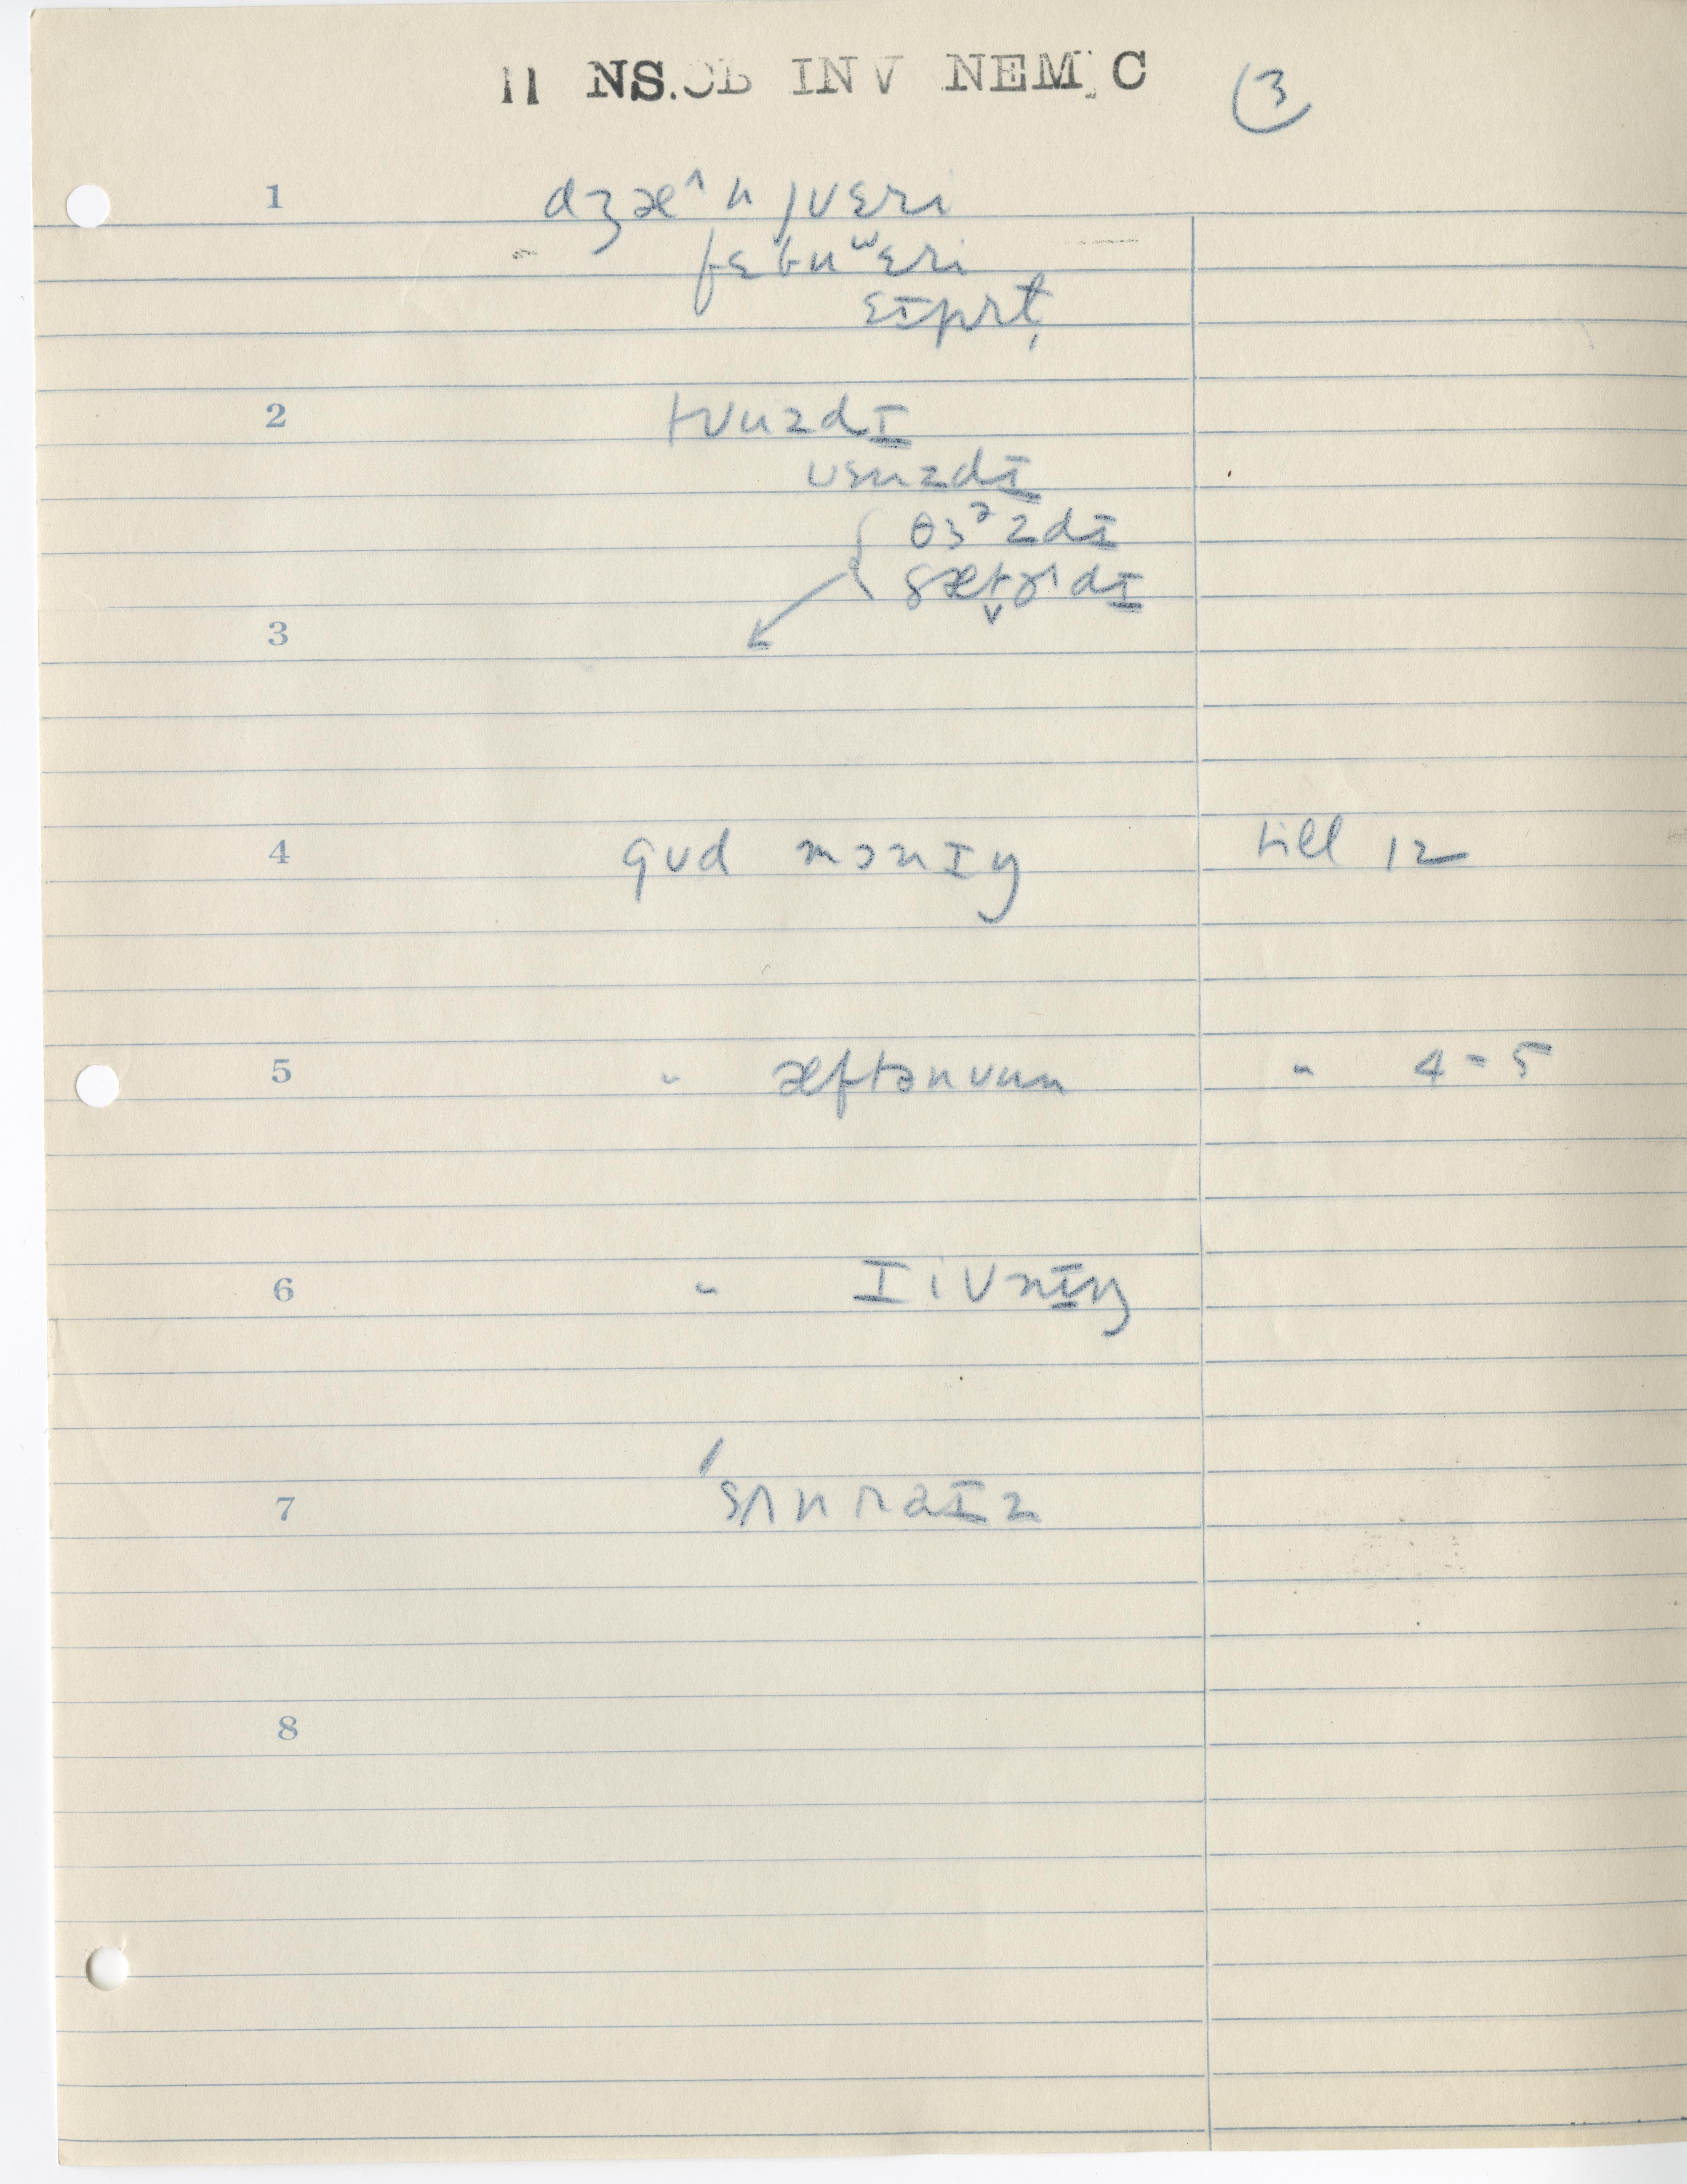 11 NS.CB INV NEM C 3
1 dʒæ^nȷʊɛri
fɛbuʷɛri
ɛɪprt̩
2 tʊuzdɪ
ʊɛnzdɪ
θɜᵊzdɪ
sæt̬ɚdɪ
3
4 gʊd mɔnɪŋ till 12
5 " æftənʊun " 4-5
6 " ɪivnɪŋ
7 ˈsʌnraɪz
8